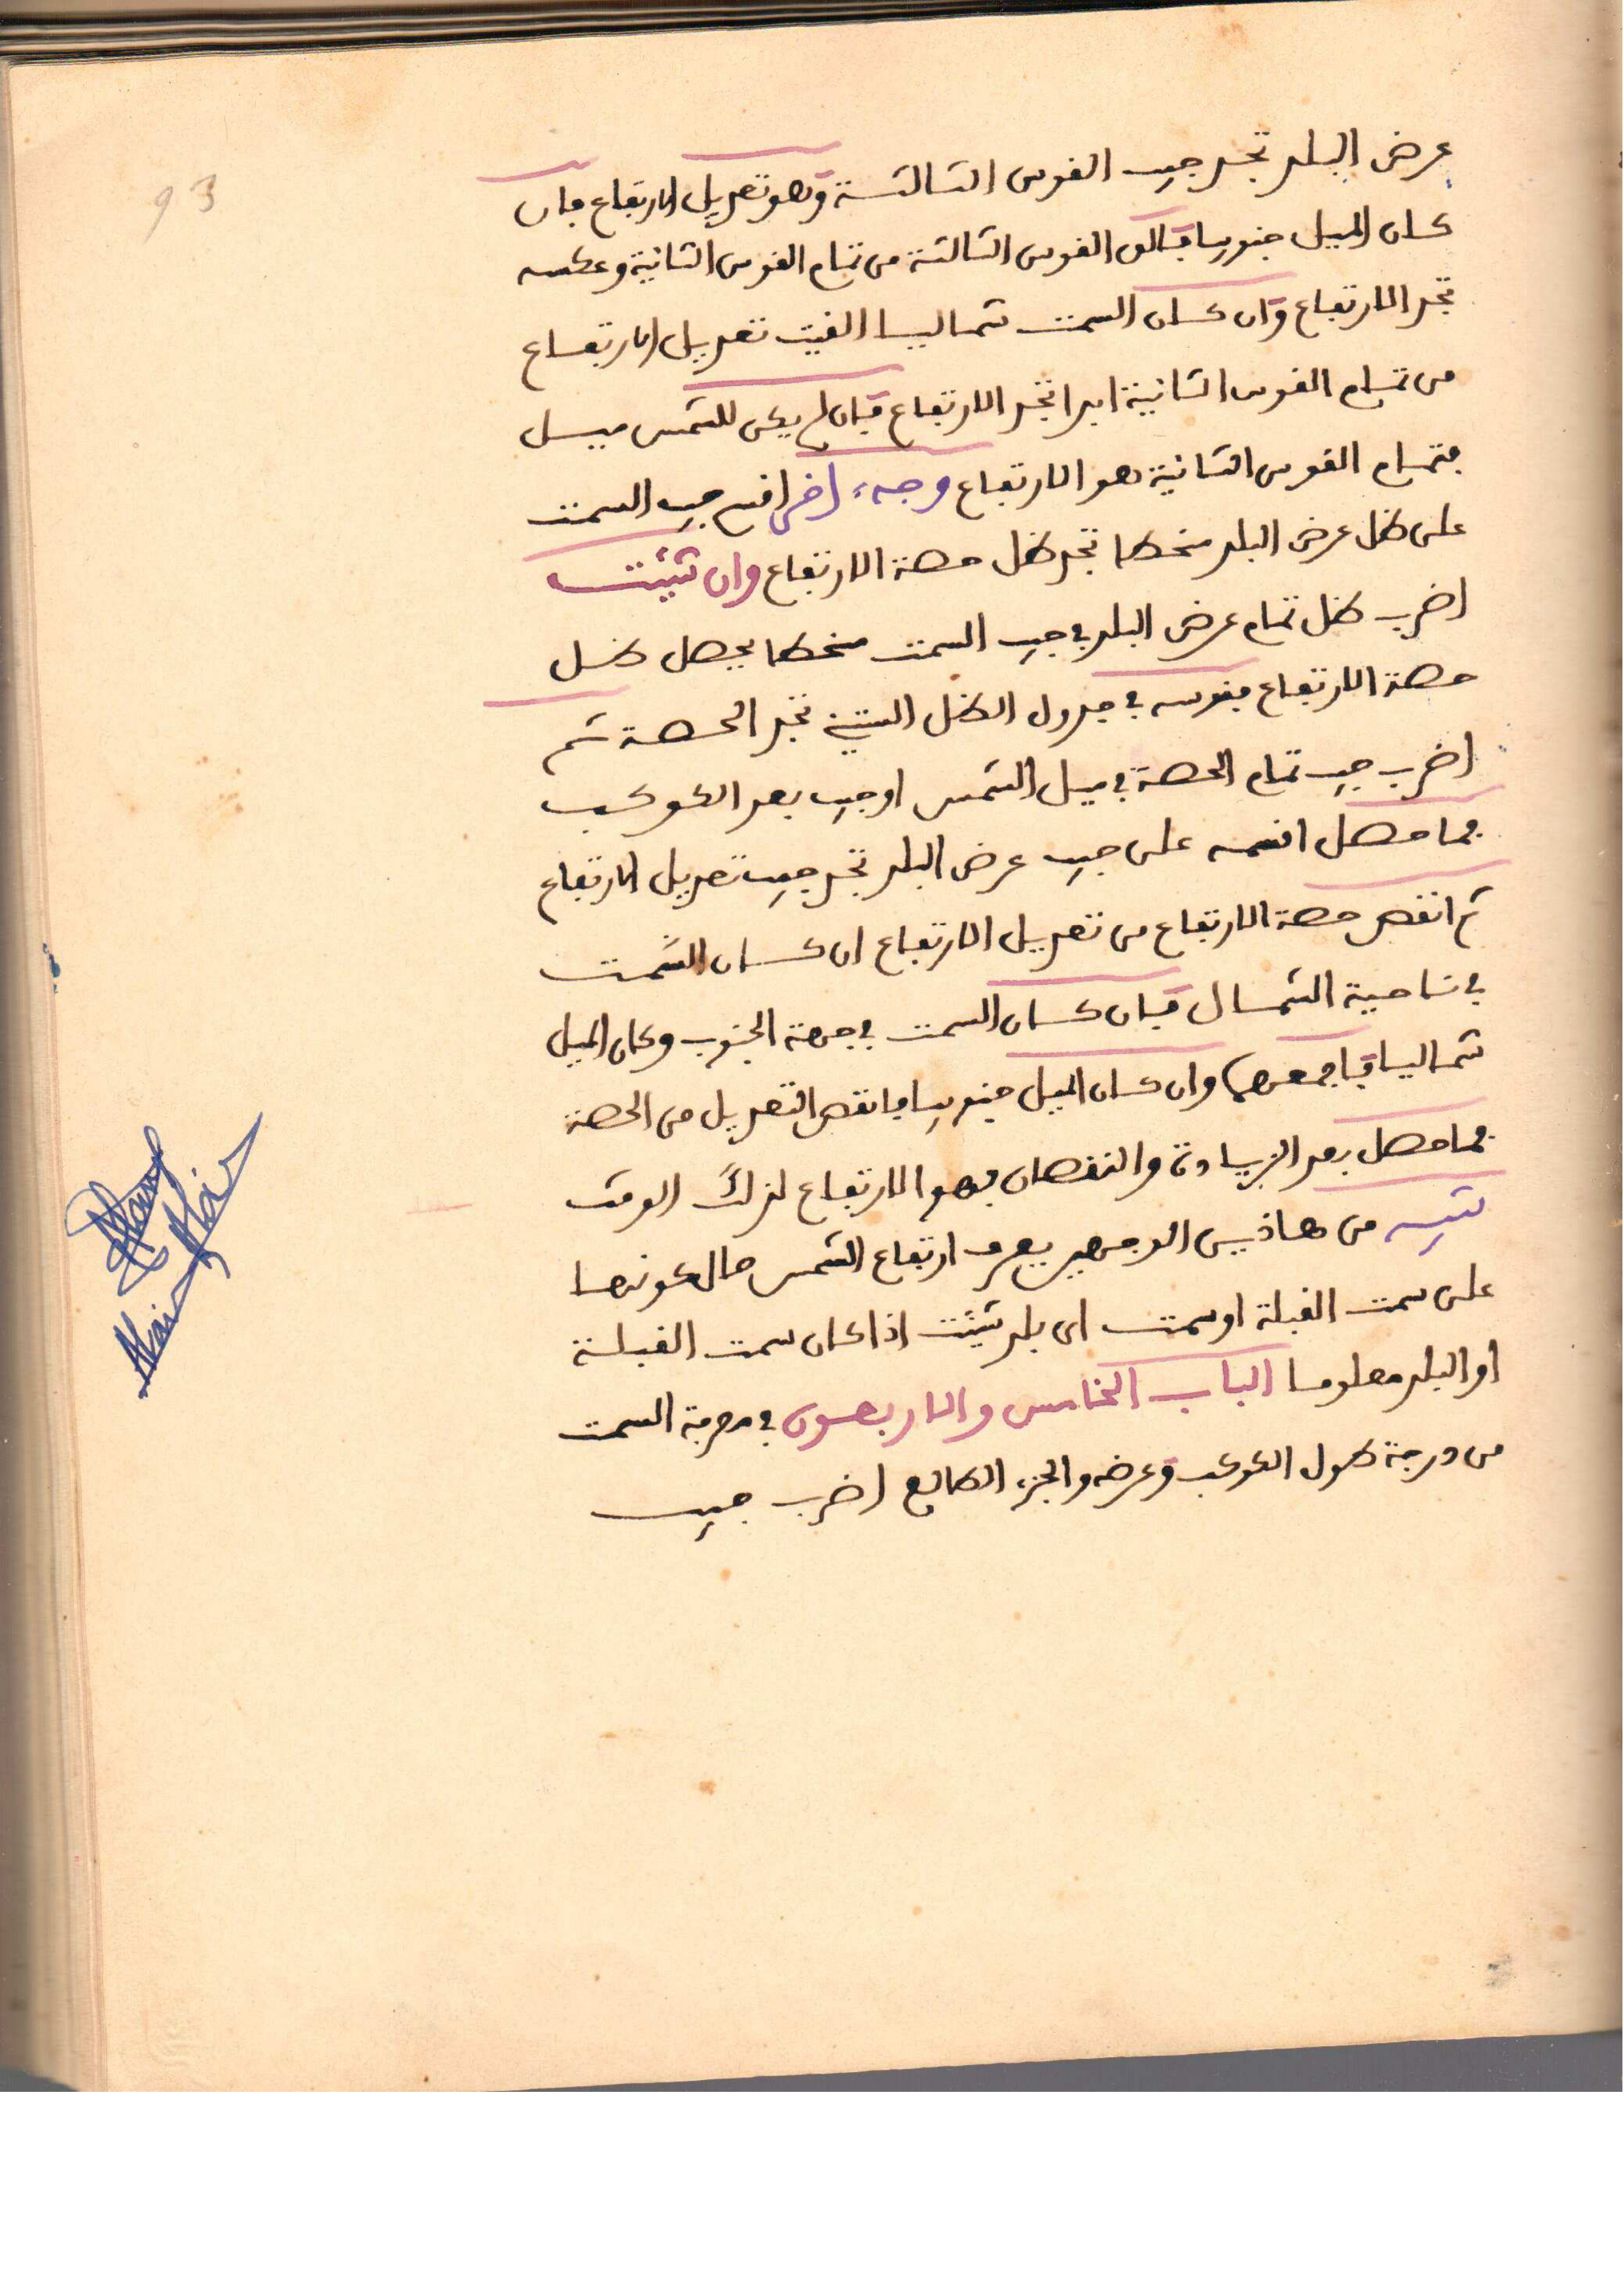 93
عرض البلد تجد جيب القوس الثالثة وهو تعديل الارتفاع فان
كان الميل جنوبيا فالق القوس الثالثة من تمام القوس الثانية وعكسه
تجد الارتفاع وان كان السمت شماليا القيت تعديل الارتفاع
من تمام القوس الثانية ابدا تجد الارتفاع فان لم يكن للشمس ميل
فتمام القوس الثانية هو الارتفاع وجه ءاخر اقسم جيب السمت
على ظل عرض البلد منحطا تجد ظل حصة الارتفاع وان شئت
اضرب ظل تمام عرض البلد في جيب السمت منحطا يحصل ظل
حصة الارتفاع فقوسه في جدول الظل الستيني تجد الحصة ثم
اضرب جيب تمام الحصة في ميل الشمس او جيب بعد الكوكب
فما حصل اقسمه على جيب عرض البلد تجد جيب تعديل الارتفاع
ثم انقص حصة الارتفاع من تعديل الارتفاع ان كان السمت
في ناحية الشمال فان كان السمت في جهة الجنوب وكان الميل
شماليا فاجمعهما وان كان الميل جنوبيا فانقص التعديل من الحصة
فما حصل بعد الزيادة والنقصان فهو الارتفاع لذلك الوقت
تنبيه من هاذين الوجهين يعرف ارتفاع الشمس حال كونها
على سمت القبلة او سمت اى بلد شئت اذا كان سمت القبلة
او البلد معلوما الباب الخامس والاربعون في معرفة السمت
من درجة طول الكوكب وعرضه والجزء الطالع اضرب جيب